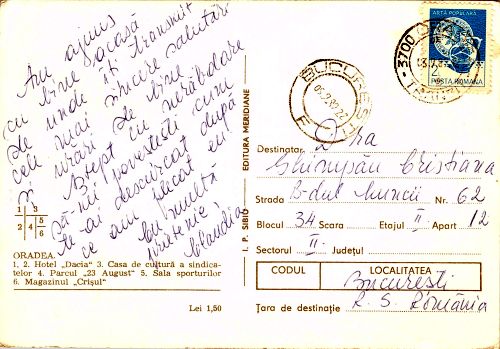 Am ajuns
cu bine acasă
de unde îți transmit
cele mai sincere salutări
și urări de bine.
Aștept cu nerăbdare
să-mi povestești cum
te-ai descurcat după
ce am plecat eu
Cu multă
prietenie,
Claudia
1 3
2 4 5
6
ORADEA.
1, 2. Hotel „Dacia" 3. Casa de cultură a sindica-
telor 4. Parcul "23 August" 5. Sala sporturilor
6. Magazinul „Crișul"
Lei 1,50
I. P. SIBIU EDITURA MERIDIANE
BUCUREȘTI
ARTA POPULARĂ
2
POSTA ROMANA
3700
Destinatar Dra
Ghimpău Cristiana
Strada B-dul Muncii Nr. 62
Blocul 34 Scara Etajul II Apart 12
Sectorul II Județul
CODUL LOCALITATEA
București
Țara de destinație R. S. România